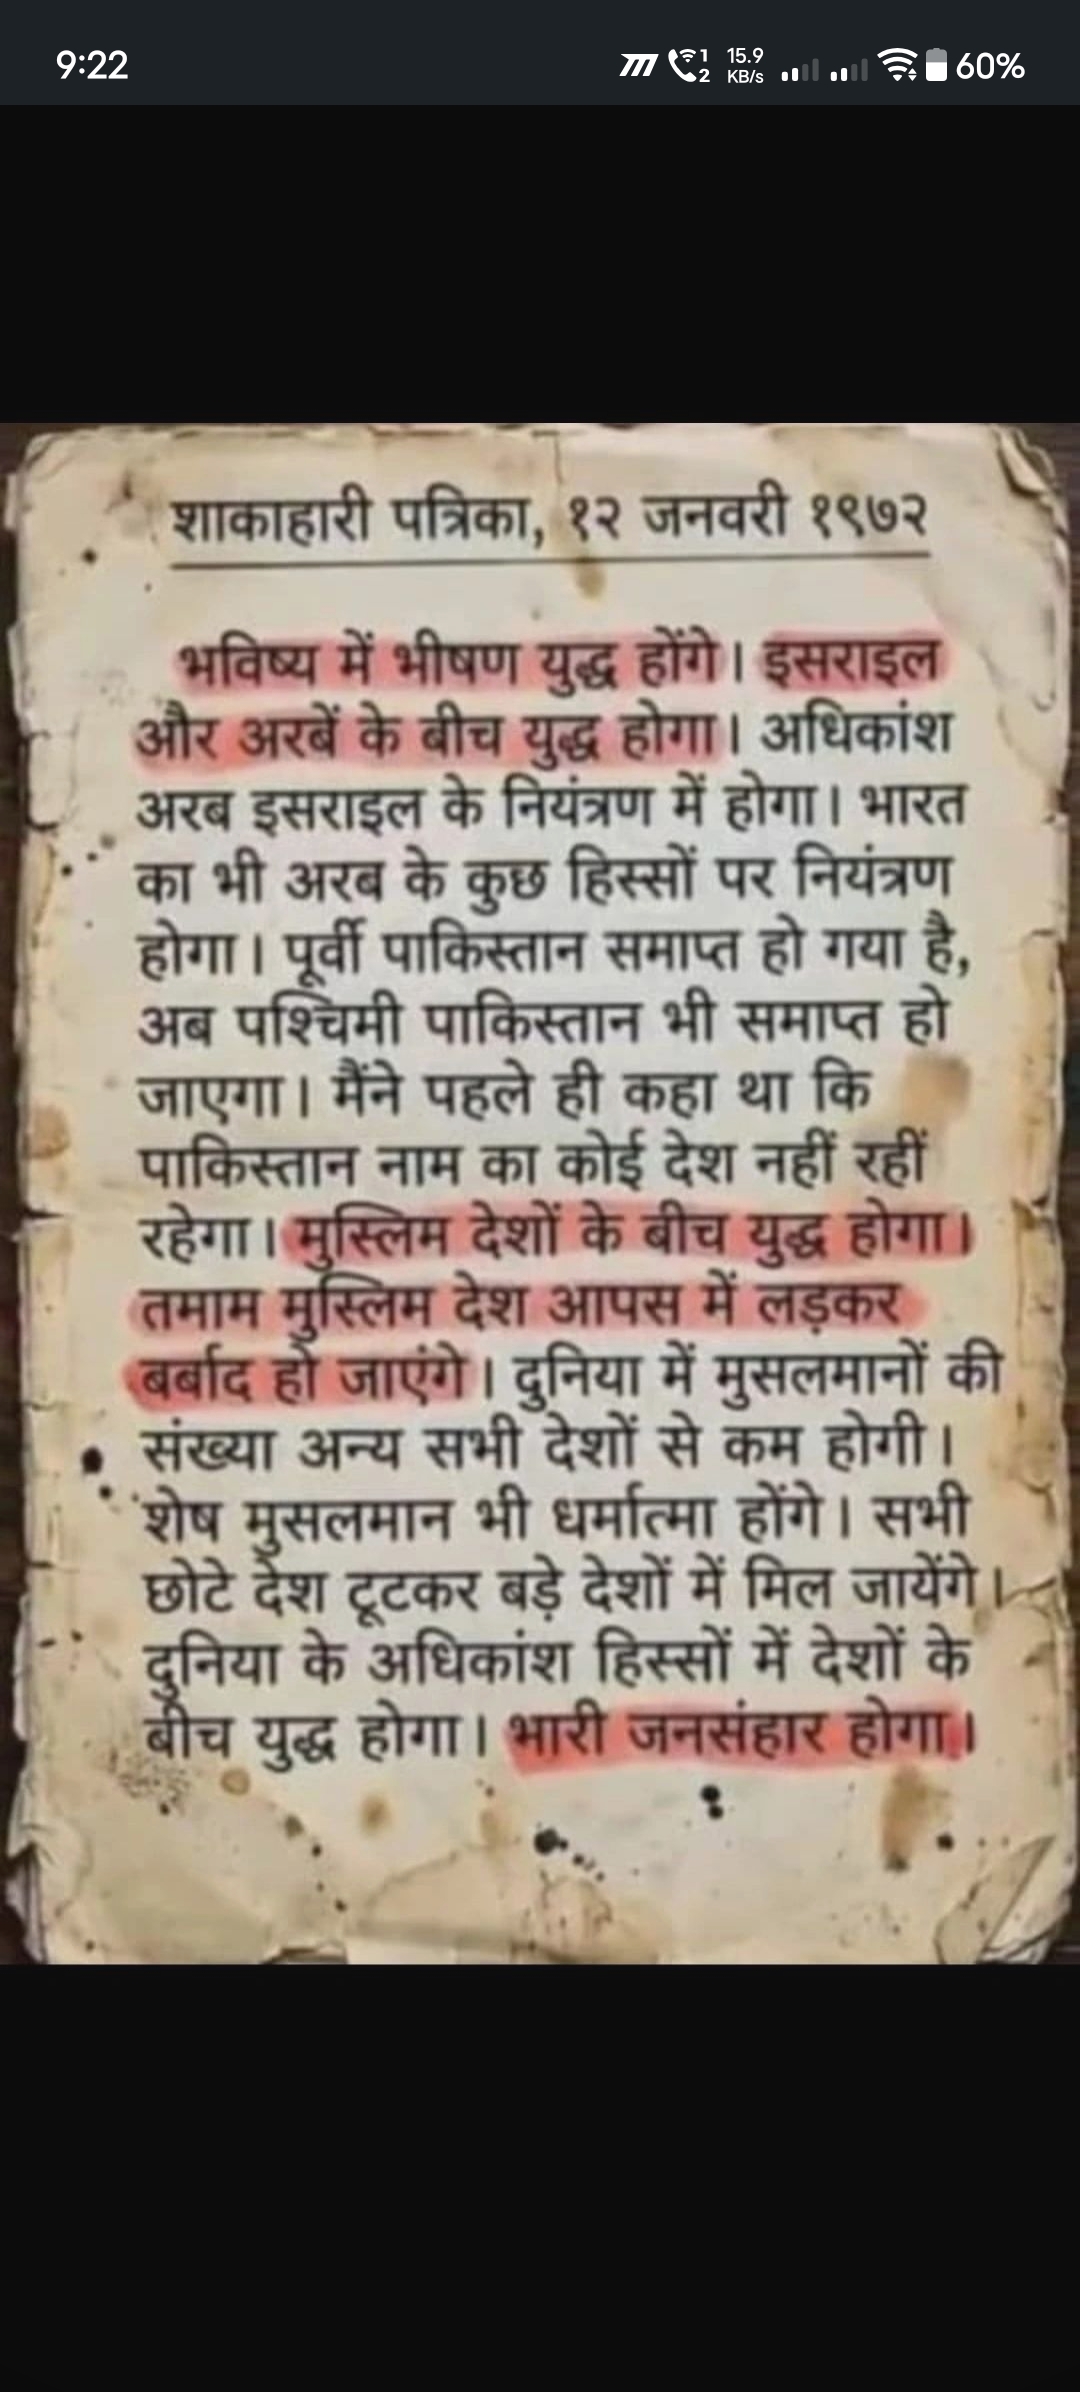 9:22
1
2
15.9
KB/s
60%
शाकाहारी पत्रिका, १२ जनवरी १९७२
भविष्य में भीषण युद्ध होंगे। इसराइल
और अरबें के बीच युद्ध होगा। अधिकांश
अरब इसराइल के नियंत्रण में होगा। भारत
का भी अरब के कुछ हिस्सों पर नियंत्रण
होगा। पूर्वी पाकिस्तान समाप्त हो गया है,
अब पश्चिमी पाकिस्तान भी समाप्त हो
जाएगा। मैंने पहले ही कहा था कि
पाकिस्तान नाम का कोई देश नहीं रहीं
रहेगा। मुस्लिम देशों के बीच युद्ध होगा।
तमाम मुस्लिम देश आपस में लड़कर
बर्बाद हो जाएंगे। दुनिया में मुसलमानों की
संख्या अन्य सभी देशों से कम होगी।
शेष मुसलमान भी धर्मात्मा होंगे। सभी
छोटे देश टूटकर बड़े देशों में मिल जायेंगे।
दुनिया के अधिकांश हिस्सों में देशों के
बीच युद्ध होगा। भारी जनसंहार होगा।